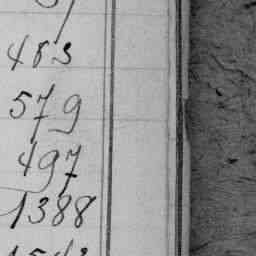 483
579
497
1388